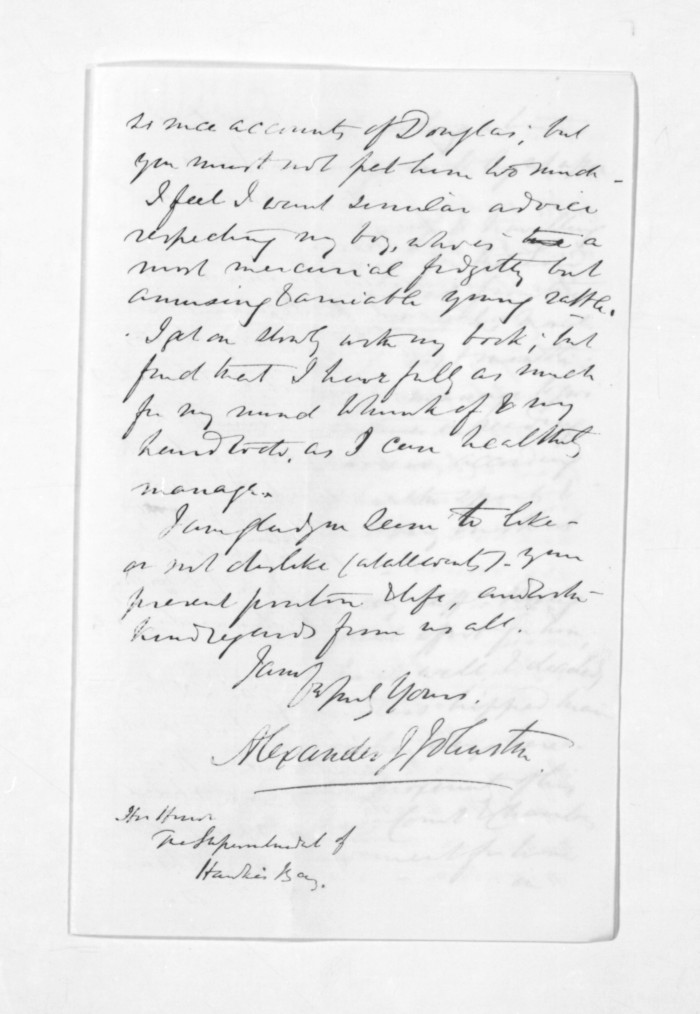 so nice accounts of Douglas; but
you must not pet him too much -
I feel I want similar advice
respecting my boy, who is a
most mercurial fidgetty but
amusing & amiable young rattle.
I get on slowly with my book; but
find that I have fully as much
for my mind to think of & my
hand to do, as I can healthily
manage.
I am glad you seem to like -
or not dislike (at all events) - your
present position & life, and with
kind regards from us all.
I am
Yours.
Alexander J Johnston
His Honor
The Superintendent of
Hawke's Bay.